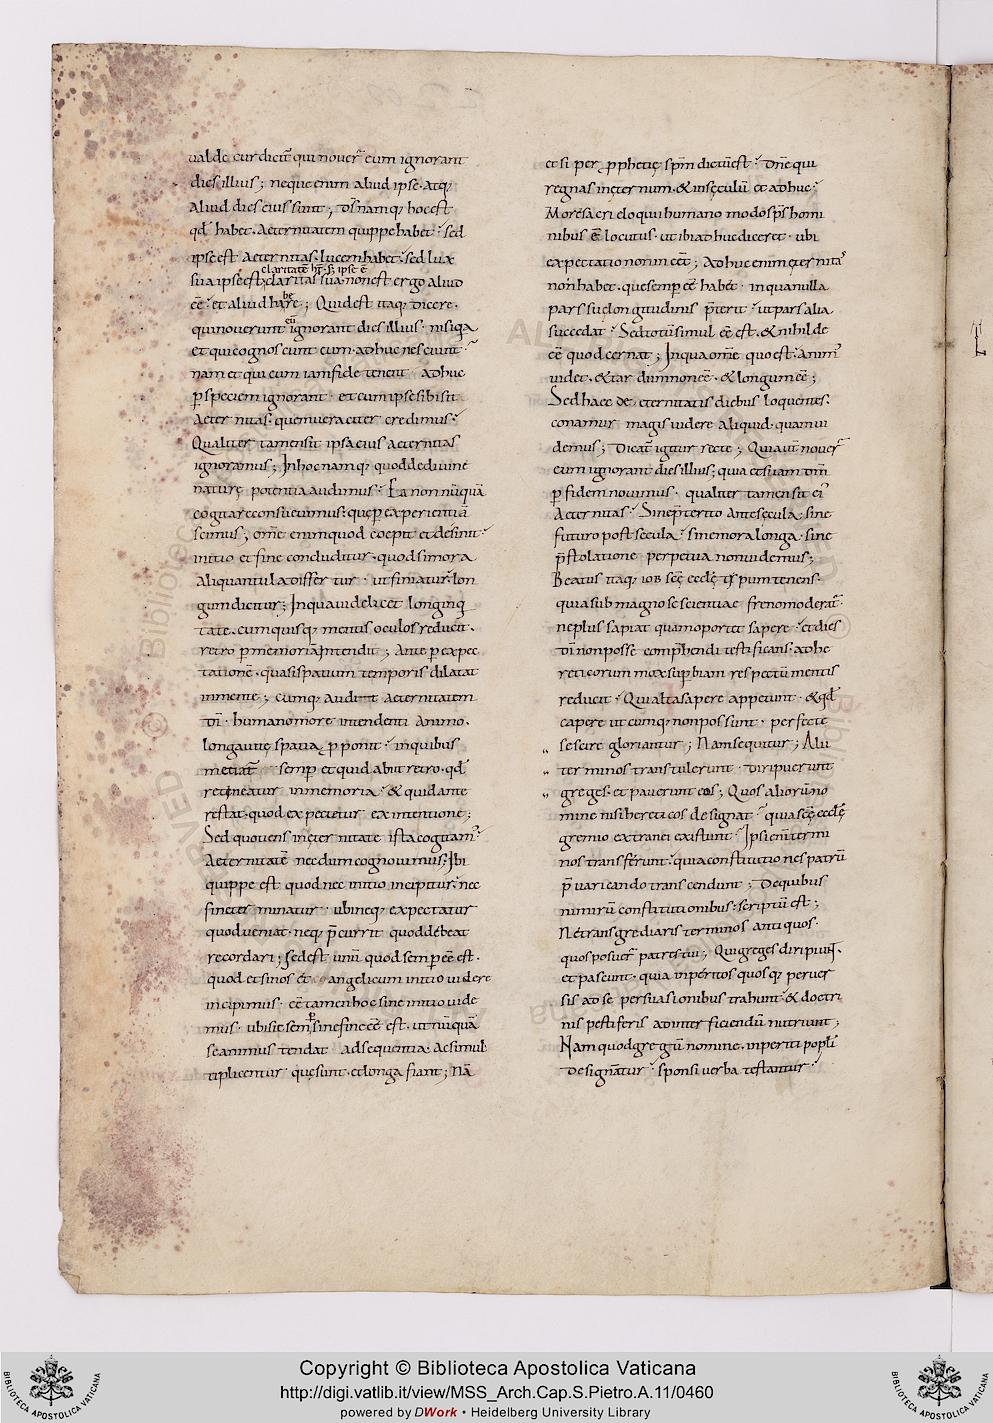 ualde cur dicit̄ qui nouer̄ eum ignorant
dies illius; neque enim aliud ipse. atq;
aliud dies eius sunt; d̄s namq; hoc est
qd̄ habet. Aeternitatem quippe habet. sed
ipse est aeternitas. lucem habet. sed lux
claritatē h̄t. s; ipse ē
sua ipse est; claritas sua. non est ergo aliud
ēē. et aliud habere; Quid est itaq; dicere.
qui nouerunt eū ignorant dies illius. nisi q̄a
et qui cognoscunt eum. adhuc nesciunt.
nam et qui eum iam fide tenent adhuc
p̄ speciem ignorant. et cum ipse sibi sit
aeternitas. quē ueraciter credimus.
Qualiter tamen sit ipsa eius aeternitas
ignoramus; In hoc namq; quod de diuinę
naturę potentia audimus. Ea non nūquā
cogitare consueuimus. quę p̄ experientiā
scimus; om̄e enim quod coepit et desinit.
initio et fine concluditur. quod si mora
aliquantula differtur. ut finiatur. lon
gum dicitur; In qua uidelicet longinq
tate. cum quisq; mentis oculos reducit.
retro p̄ memoriā intendit; Ante p̄ expec
tationē. quasi spatium temporis dilatat
in mente; cumq; audit aeternitatem
d̄i. humano more intendenti animo.
longa uitę spatia p̄ponit. in quibus
metiat̄ semp̄ et quid abiit retro. qd̄
retineatur in memoria. & quid ante
restat. quod expectetur ex intentione;
Sed quotiens in ęternitate ista cogitam̄.
Aeternitatē necdum cognouimus; Ibi
quippe est quod nec initio incipitur. nec
fine terminatur. ubi neq; expectatur
quod ueniat. neq; p̄currit quod debeat
recordari; sed est unū quod semp̄ ēē est.
quod etsi nos et angeli cum initio uidere
incipimus. ēē tamen hoc sine initio uide
mus. ubi sic semp̄ sine fine ēē est. ut nūquā
se animus tendat ad sequentia. ac si mul
tiplicentur quę sunt. et longa fiant; Nā
et si per p̄phetię sp̄m dictū est. Dn̄e qui
regnas in ęternum. & in sęculū et adhuc.
More sacri eloquii humano modo sp̄s homi
nibus ē locutus. ut ibi adhuc diceret. ubi
expectatio non inēēt; Adhuc enim ęternitas
non habet. quę semp̄ ēē habet. in qua nulla
pars suę longitudinis p̄terit. ut pars alia
succedat. Sed totū simul ēē est. & nihil de
ēē quod cernat; In qua om̄e quo est. animus
uidet. & tardum non ēē. & longum ēē;
Sed haec de ęternitatis diebus loquentes.
conamur magis uidere aliquid. quam ui
demus; Dicat̄ igitur recte; Qui aut̄ nouer̄
eum ignorant dies illius; quia etsi iam dm̄
p̄ fidem nouimus. qualiter tamen sit ei'
aeternitas. Sine p̄terito ante sęcula. sine
futuro post sęcula. sine mora longa. sine
p̄stolatione perpetua non uidemus;
Beatus itaq; iob scę̄ eccłę typum tenens.
quia sub magno se scientiae freno moderat̄.
ne plus sapiat quam oportet sapere. et dies
d̄i non posse comp̄hendi testificans. ad he
reticorum mox sup̄biam respectū mentis
reducit. Qui alta sapere appetunt. & qd̄
capere utcumq; non possunt. perfecte
se scire gloriantur; Nam sequitur; Alii
terminos transtulerunt. diripuerunt
greges. et pauerunt eos; Quos aliorū no
mine nisi hereticos designat. qui a scę̄ eccłę
gremio extranei existunt. Ipsi eni͞ termi
nos transferunt. quia constitutiones patrū
p̄uaricando transcendunt; De quibus
nimirū constitutionibus. scriptū est;
Ne transgrediaris terminos antiquos.
quos posuer̄ patres tui; Qui greges diripiunt.
et pascunt. quia inperitos quosq; peruer
sis ad se persuasionibus trahunt. & doctri
nis pestiferis ad interficiendū nutriunt;
Nam quod gregū nomine. inperiti popli
designātur. sponsi uerba testantur.
Copyright © Biblioteca Apostolica Vaticana
http://digi.vatlib.it/view/MSS_Arch.Cap.S.Pietro.A.11/0460
powered by DWork • Heidelberg University Library
BIBLIOTECA APOSTOLICA VATICANA
BIBLIOTECA APOSTOLICA VATICANA